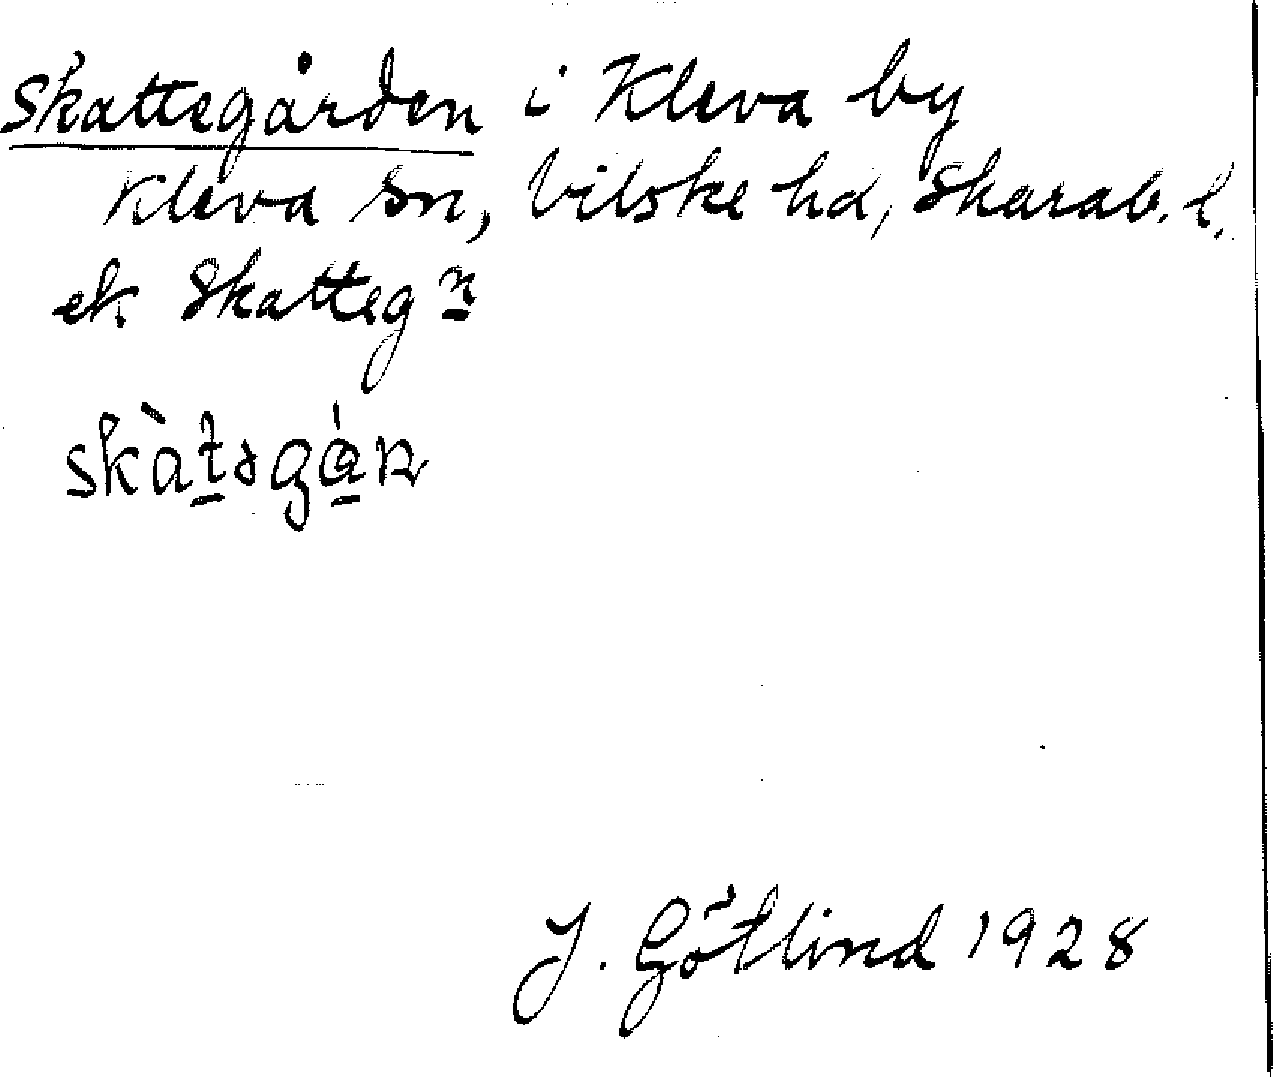 Skattegården i Kleva by
Kleva sn, Vilske hd, Skarab. l.
ek Skatteg n
skàt̠əgá̠ɴ
J. Götlind 1928